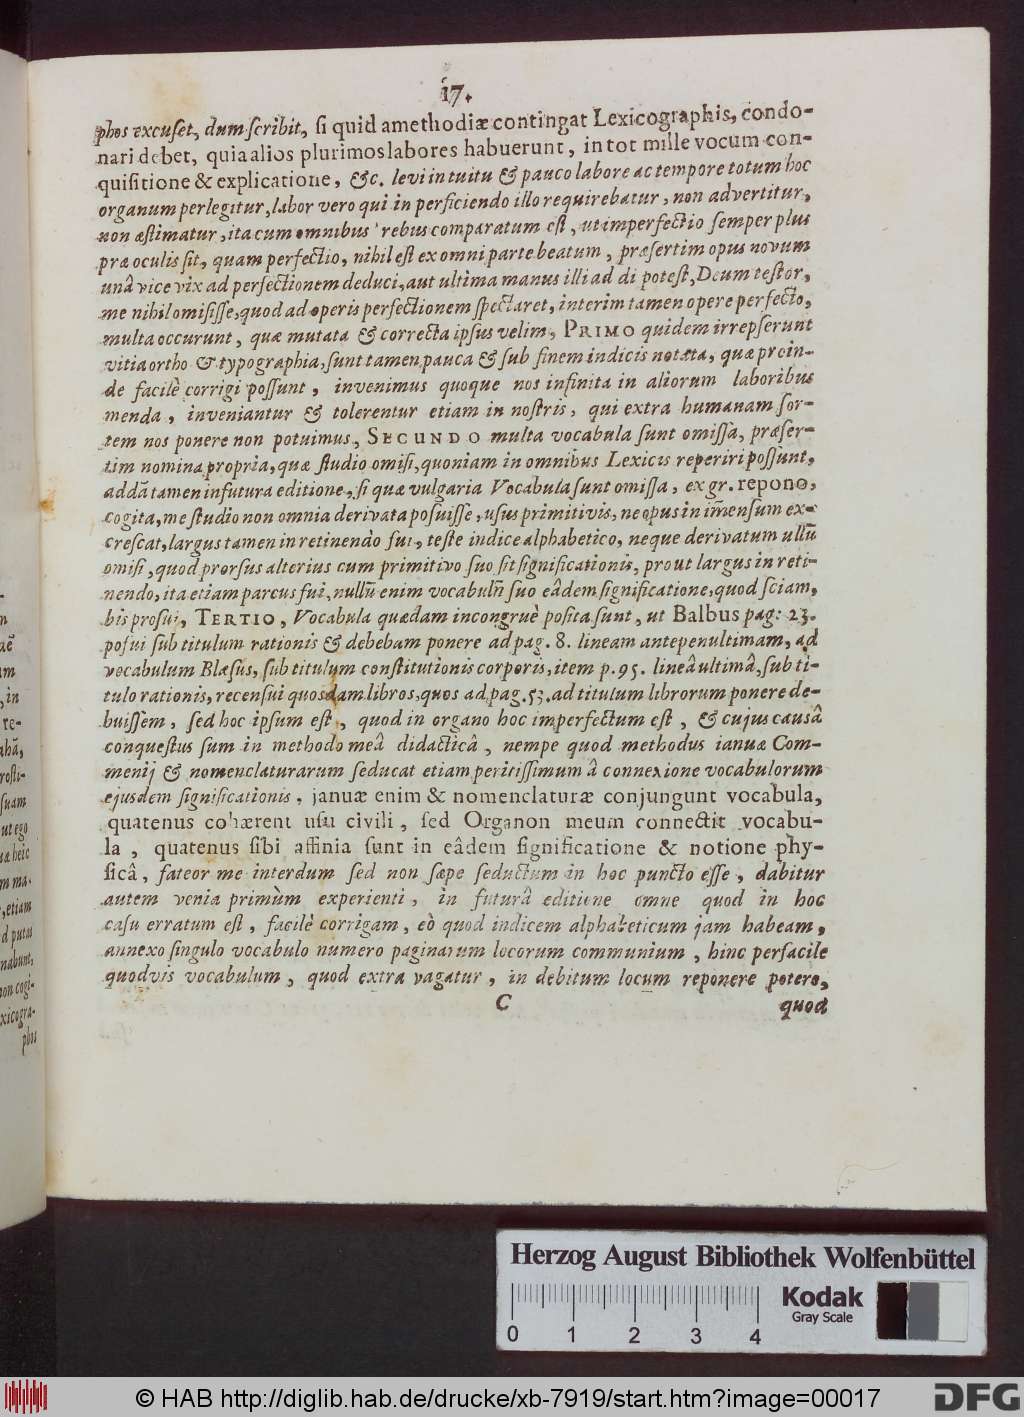 17.
phos excuset, dum scribit, si quid amethodiæ contingat Lexicographis, condo-
nari debet, quia alios plurimos labores habuerunt, in tot mille vocum con-
quisitione & explicatione, &c. levi intuitu & pauco labore ac tempore totum hoc
organum perlegitur, labor vero qui in perficiendo illo requirebatur, non advertitur,
non æstimatur, ita cum omnibus rebus comparatum est, ut imperfectio semper plus
præ oculis sit, quam perfectio, nihil est ex omni parte beatum, præsertim opus novum
unâ vice vix ad perfectionem deduci, aut ultima manus illi ad di potest, Deum testor,
me nihil omisisse, quod ad operis perfectionem spectaret, interim tamen opere perfecto,
multa occurunt, quæ mutata & correcta ipsus velim, PRIMO quidem irrepserunt
vitia ortho & typographia, sunt tamen pauca & sub finem indicis notata, quæ proin-
de facilè corrigi possunt, invenimus quoque nos infinita in aliorum laboribus
menda, inveniantur & tolerentur etiam in nostris, qui extra humanam sor-
tem nos ponere non potuimus, SECUNDO multa vocabula sunt omissa, præser-
tim nomina propria, quæ studio omisi, quoniam in omnibus Lexicis reperiri possunt,
addā tamen in futura editione, si quæ vulgaria Vocabula sunt omissa, ex gr. repono,
cogita, me studio non omnia derivata posuisse, usus primitivis, ne opus in im̄ensum ex-
crescat, largus tamen in retinendo fui, teste indice alphabetico, neque derivatum ullū
omisi, quod prorsus alterius cum primitivo suo sit significationis, prout largus in reti-
nendo, ita etiam parcus fui, nullū enim vocabulū suo eâdem significatione, quod sciam,
bis prosui, TERTIO, Vocabula quædam incongruè posita sunt, ut Balbus pag: 23.
posui sub titulum rationis & debebam ponere ad pag. 8. lineam antepenultimam, ad
vocabulum Blæsus, sub titulum constitutionis corporis, item p. 95. lineâ ultimâ, sub ti-
tulo rationis, recensui quosdam libros, quos ad pag. 53. ad titulum librorum ponere de-
buissem, sed hoc ipsum est, quod in organo hoc imperfectum est, & cujus causâ
conquestus sum in methodo meâ didacticâ, nempe quod methodus ianuæ Com-
menij & nomenclaturarum seducat etiam peritissimum â connexione vocabulorum
ejusdem significationis, januæ enim & nomenclaturæ conjungunt vocabula,
quatenus cohærent usu civili, sed Organon meum connectit vocabu-
la, quatenus sibi affinia sunt in eâdem significatione & notione phy-
sicâ, fateor me interdum sed non sæpe seductum in hoc puncto esse, dabitur
autem venia primùm experienti, in futurâ editione omne quod in hoc
casu erratum est, facilè corrigam, eò quod indicem alphabeticum jam habeam,
annexo singulo vocabulo numero paginarum locorum communium, hinc perfacile
quodvis vocabulum, quod extra vagatur, in debitum locum reponere potero,
C quod
n
aē
im
, in
re-
ahā,
rosti-
suam
ut ego
uæ heic
m ma-
, etiam
d putas
nabunt,
non cogi-
xicogra-
phos
Herzog August Bibliothek Wolfenbüttel
0 1 2 3 4
Kodak
Gray Scale
© HAB http://diglib.hab.de/drucke/xb-7919/start.htm?image=00017
DFG